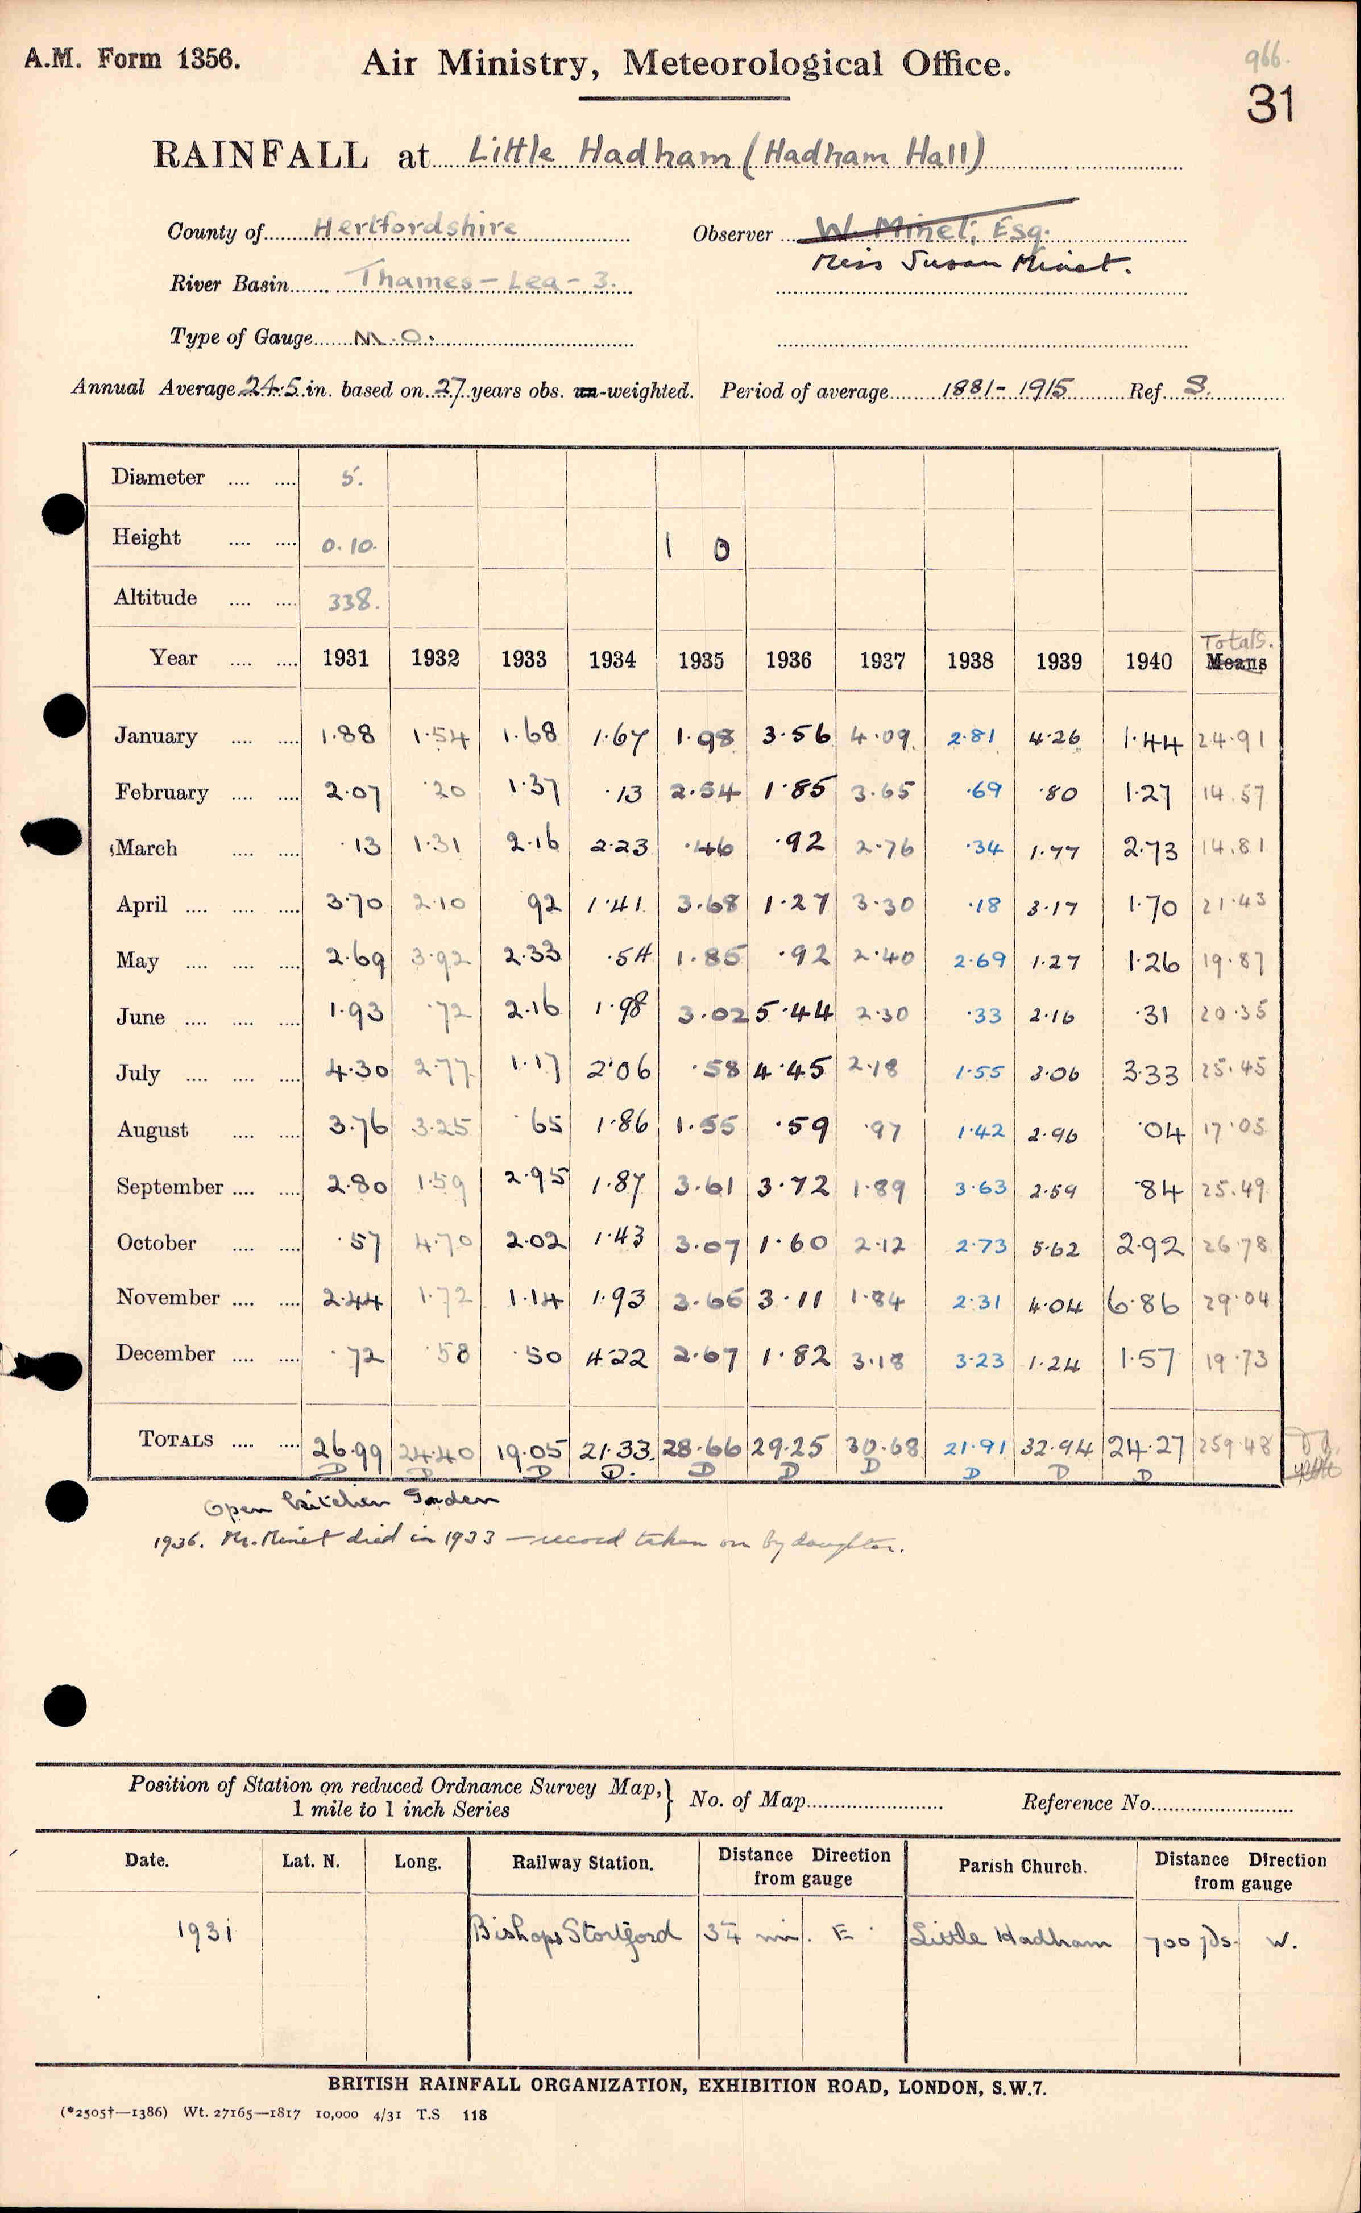 A.M. Form 1356.
Air Ministry, Meteorological Office.
966.
31
RAINFALL at Little Hadham (Hadham Hall)
County of Hertfordshire Observer W. Minet, Esq.
Miss Susan Minet.
River Basin Thames - Lea - 3.
Type of Gauge M.O.
Annual Average 24.5 in. based on 27 years obs. un-weighted. Period of average 1881-1915 Ref. S.
Diameter .... .... 5.
Height .... .... 0.10. 1 0
Altitude .... .... 338.
Totals.
Year .... .... 1931 1932 1933 1934 1935 1936 1937 1938 1939 1940 Means
January .... .... 1.88 1.54 1.68 1.67 1.98 3.56 4.09 2.81 4.26 1.44 24.91
February .... .... 2.07 .20 1.37 .13 2.54 1.85 3.65 .69 .80 1.27 14.57
March .... .... .13 1.31 2.16 2.23 .46 .92 2.76 .34 1.77 2.73 14.81
April .... .... .... 3.70 2.10 .92 1.41 3.68 1.27 3.30 .18 3.17 1.70 21.43
May .... .... .... 2.69 3.92 2.33 .54 1.85 .92 2.40 2.69 1.27 1.26 19.87
June .... .... .... 1.93 .72 2.16 1.98 3.02 5.44 2.30 .33 2.16 .31 20.35
July .... .... .... 4.30 2.77 1.17 2.06 .58 4.45 2.18 1.55 3.06 3.33 25.45
August .... .... 3.76 3.25 .65 1.86 1.55 .59 .97 1.42 2.96 .04 17.05
September .... .... 2.80 1.59 2.95 1.87 3.61 3.72 1.89 3.63 2.59 .84 25.49
October .... .... .57 4.70 2.02 1.43 3.07 1.60 2.12 2.73 5.62 2.92 26.78
November .... .... 2.44 1.72 1.14 1.93 3.65 3.11 1.84 2.31 4.04 6.86 29.04
December .... .... .72 .58 .50 4.22 2.67 1.82 3.18 3.23 1.24 1.57 19.73
TOTALS .... .... 26.99 24.40 19.05 21.33 28.66 29.25 30.68 21.91 32.94 24.27 259.48
D D D D. D D D D D D
Open kitchen Garden
1936. Mr. Minet died in 1933 — record taken on by daughter.
Position of Station on reduced Ordnance Survey Map,} No. of Map Reference No.
1 mile to 1 inch Series
Date. Lat. N. Long. Railway Station. Distance Direction from gauge Parish Church. Distance Direction from gauge
1931 Bishops Stortford 3¼ mi. E. Little Hadham 700 yds. W.
BRITISH RAINFALL ORGANIZATION, EXHIBITION ROAD, LONDON, S.W.7.
(*2505†—1386) Wt. 27165—1817 10,000 4/31 T.S 118